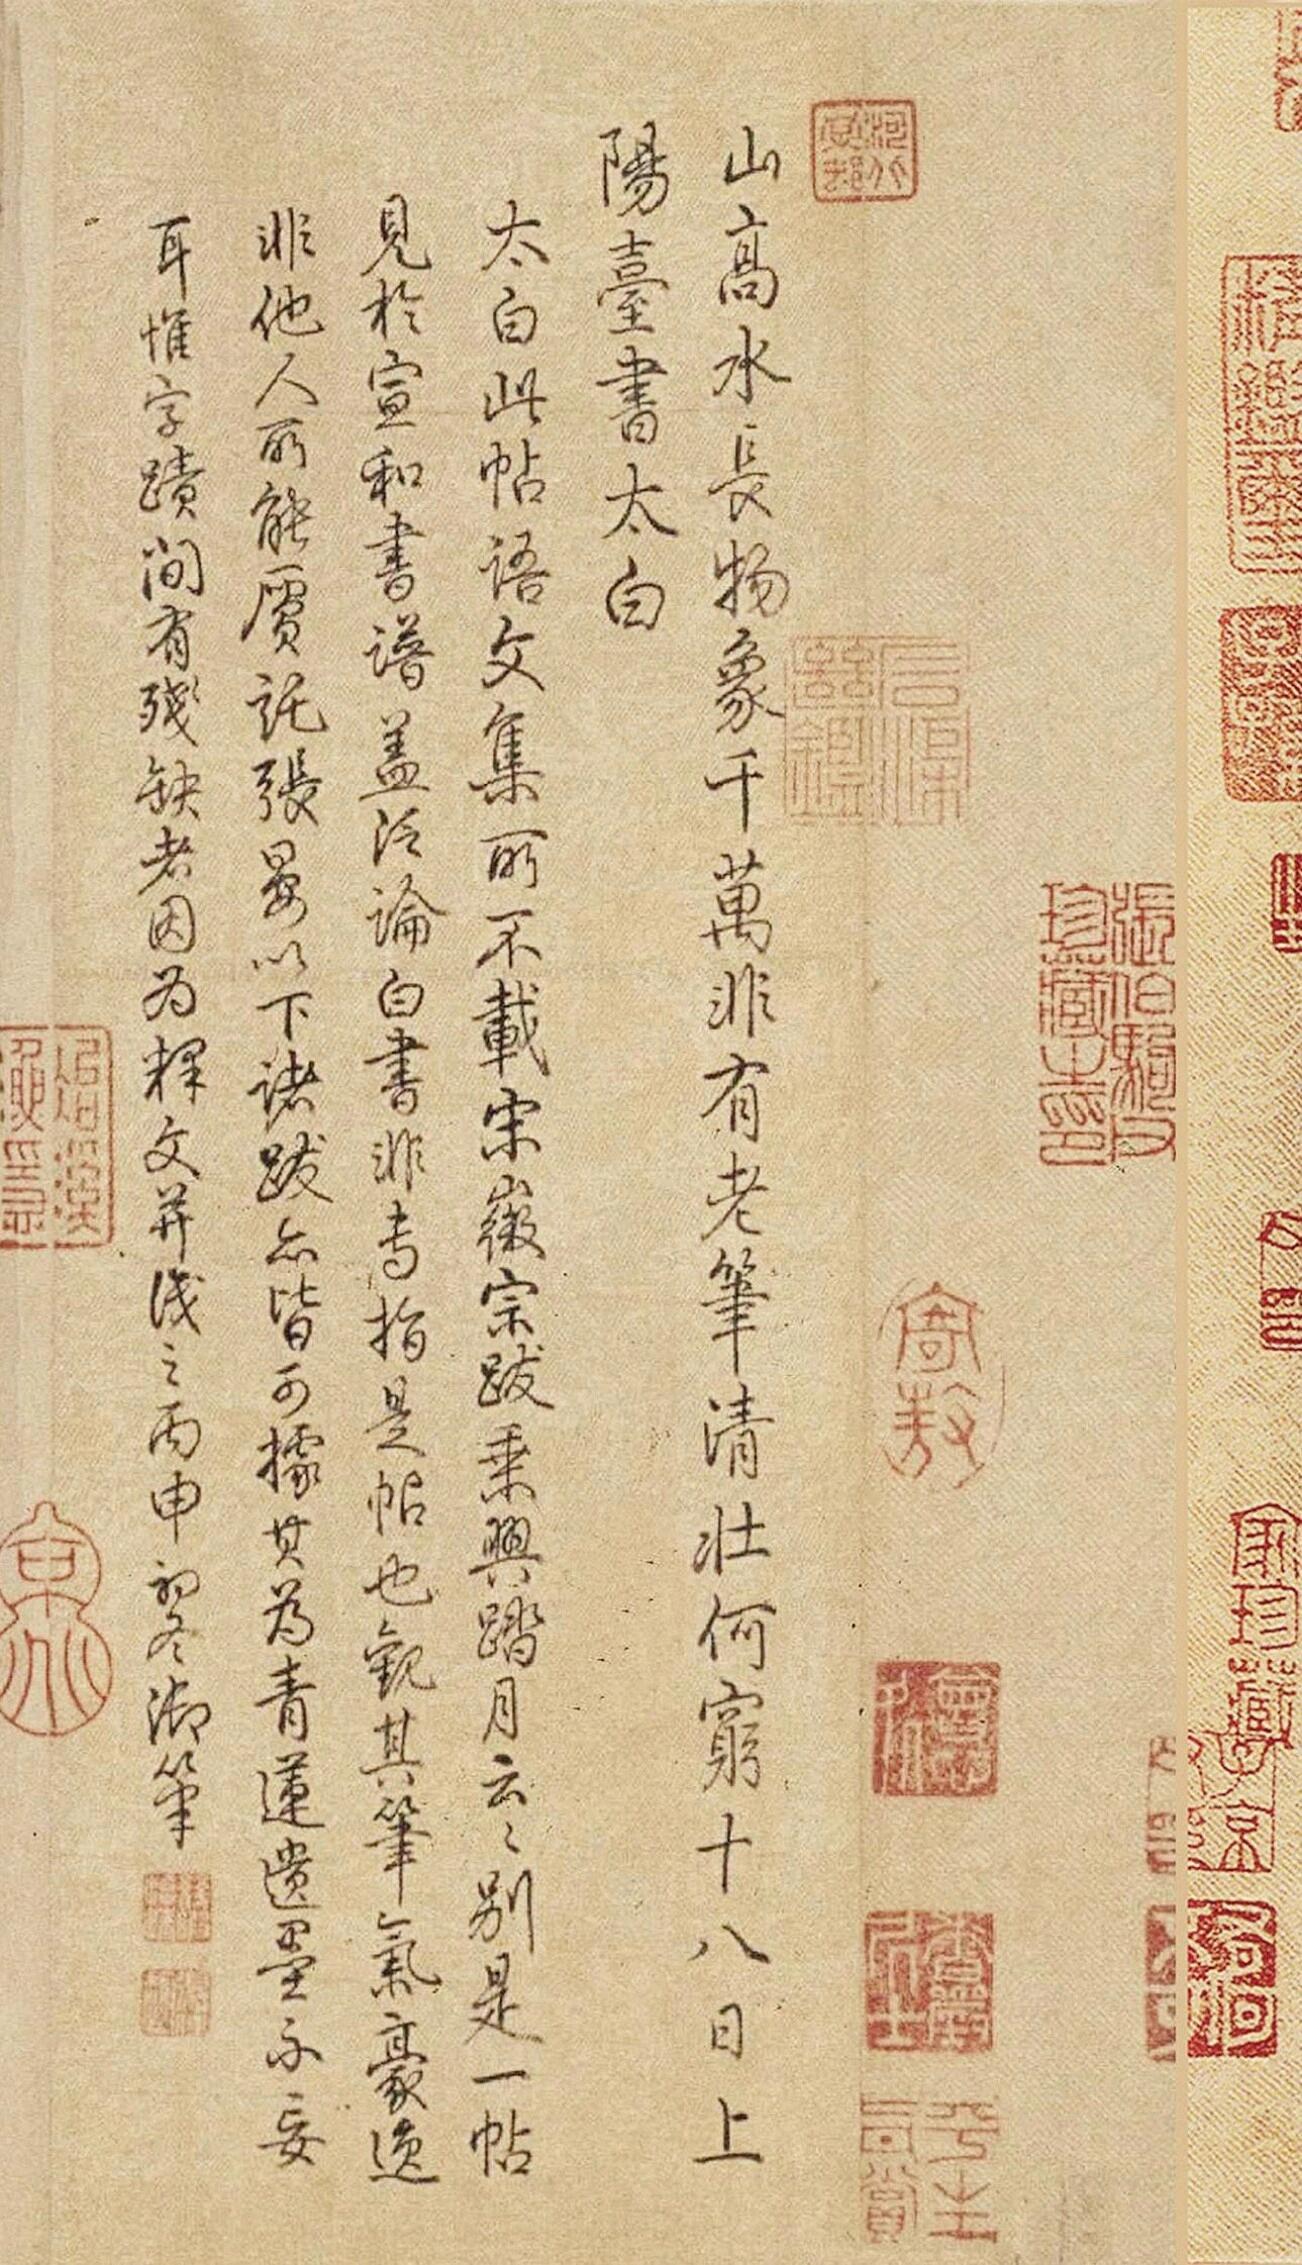 山高水長物象千萬非有老筆清壯何窮十八日上
陽臺書太白
太白此帖語文集所不載宋徽宗跋乘興踏月云〻別是一帖
見於宣和書譜盖泛論白書非專指是帖也觀其筆氣豪逸
非他人所能贗託張晏以下諸跋亦皆可據其為青蓮遺墨不妄
耳惟字蹟間有殘缺者因為釋文并識之丙申初冬御筆
張伯駒父珍藏之印